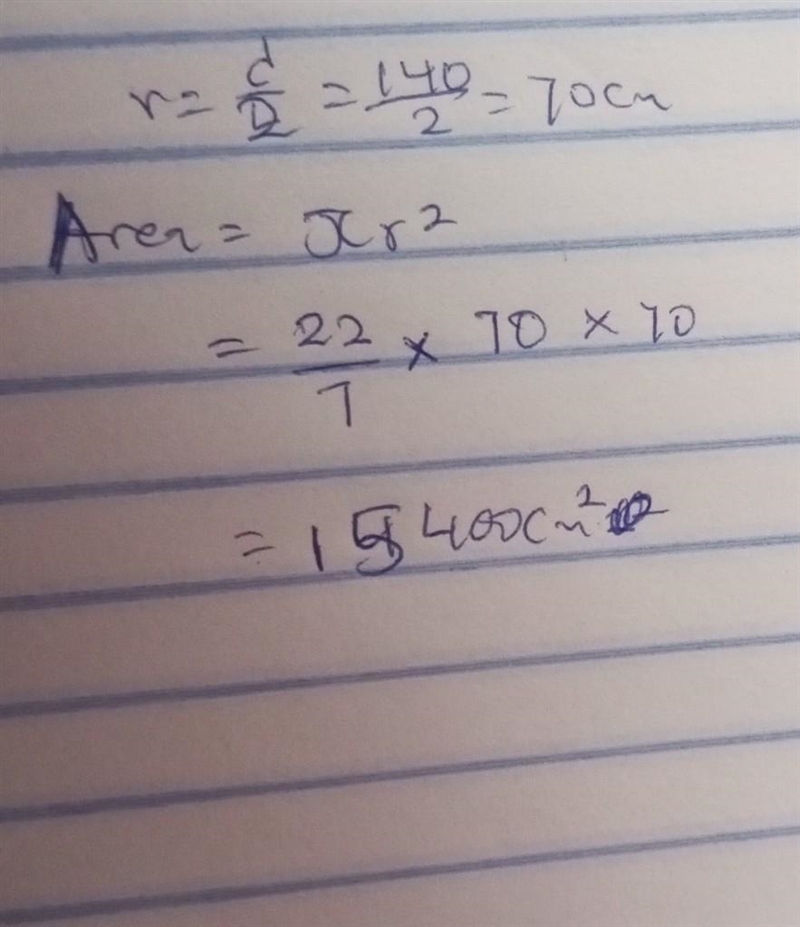 r = d/2 = 140/2 = 70cm
Area = πr²
= 22/7 × 70 × 70
= 15400cm²